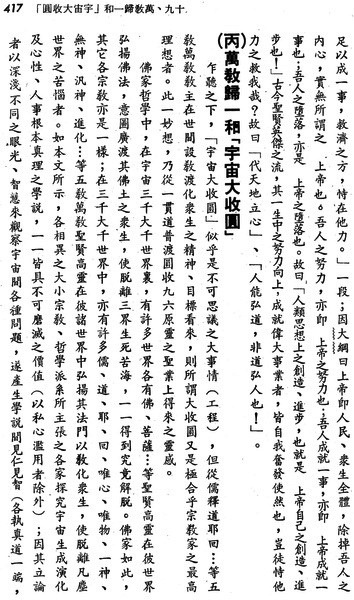 417 「圓收大宙宇」和一歸教萬、九十.
足以成一事,教濟之方,恃在他力。」一段;因大綱曰上帝即人民、衆生全體,除掉吾人之
內心,實無所謂之 上帝也。吾人之努力,亦即 上帝之努力也;吾人成就一事,亦即 上帝成就一
事也;吾人之墮落,亦是 上帝之墮落也。故曰:「人類思想上之創造、進步,也就是 上帝自己之創造、進
步也!」古今聖賢英傑之流,其一生中之努力向上,成就偉大事業者,皆自我奮發使然也,豈徒恃他
力之救我哉?故曰:「代天地立心」、「人能弘道,非道弘人也!」。
(丙)萬敎歸一和「宇宙大收圓」
乍聽之下,「宇宙大收圓」似乎是不可思議之大事情(工程),但從儒釋道耶回…等五
敎萬敎敎主在世間設敎渡化衆生之精神、目標看來,則所謂大收圓又是極合乎宗敎家之最高
理想者。此一妙想,乃從一貫道普渡圓收九六原靈之聖業上得來之靈感。
佛家哲學中,在宇宙三千大千世界裏,有許多世界各有佛、菩薩…等聖賢高靈在彼世界
弘揚佛法,意圖廣渡其佛土之衆生,使脫離三界生死苦海,一一得到究竟解脫。佛家如此,
其它各宗敎亦是一樣;在三千大千世界中,亦有許多儒、道、耶、回、唯心、唯物、一神、
無神、汎神、進化…等五敎萬敎聖賢高靈在彼諸世界中弘揚其法門以敎化衆生,使脫離凡塵
世界之苦惱者。如本文所示,各相異之大小宗敎、哲學派系所主張之各家探究宇宙生成演化
及心性、人事根本眞理之學說,一一皆具不可磨滅之價值(以私心濫用者除外);因其立論
者以深淺不同之眼光、智慧來觀察宇宙間各種問題,遂產生學說間見仁見智(各執眞道一端,